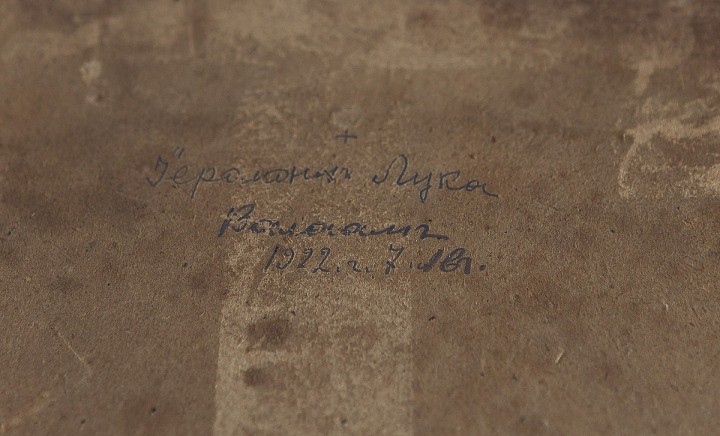 +
Іеромонахъ Лука
Валаамъ
1922. г. 7. Ав.